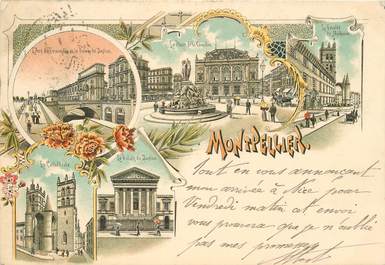 L'Arc de Triomphe et le Palais de Justice
La Place de la Comédie
La Faculté de Médecine
MONTPELLIER.
La Cathédrale
Le Palais de Justice
Tout en vous annonçant
mon arrivée à Nice pour
Vendredi matin et envoi
vous prouvera que je n'oublie
pas mes promesses